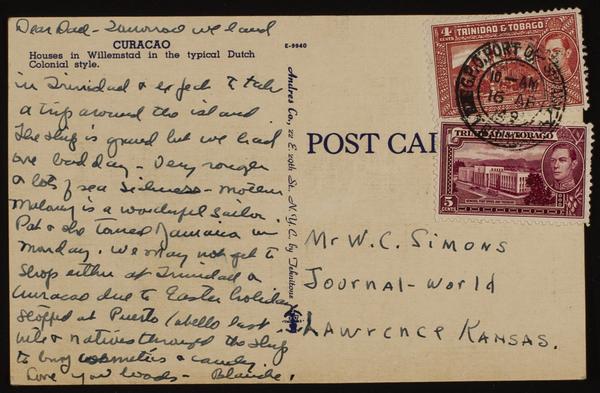 Dear Dad - Tomorrow we land
CURACAO
Houses in Willemstad in the typical Dutch
Colonial style.
E-9940
in Trinidad & expect to take
a trip around the island
The ship is grand but we had
one bad day - Very rough
& lots of sea sickness - Mother
Malony is a wonderful sailor.
Pat & she toured Jamaica on
Monday. We may not get to
shop either at Trinidad or
Curacao due to Easter holiday
stopped at Puerto Cabello last
nite & natives through the ship
to buy cosmetics & candy.
Love you loads - Blanche.
Andres Co., 22 E. 20th St., N.Y.C. by
POST CA
4
CENTS
TRINIDAD & TOBAGO
G.P.O. PORT OF
10-AM
16 AP
TRINIDAD & TOBAGO
5
CENTS
Mr W.C. Simons
Journal-World
Lawrence Kansas.